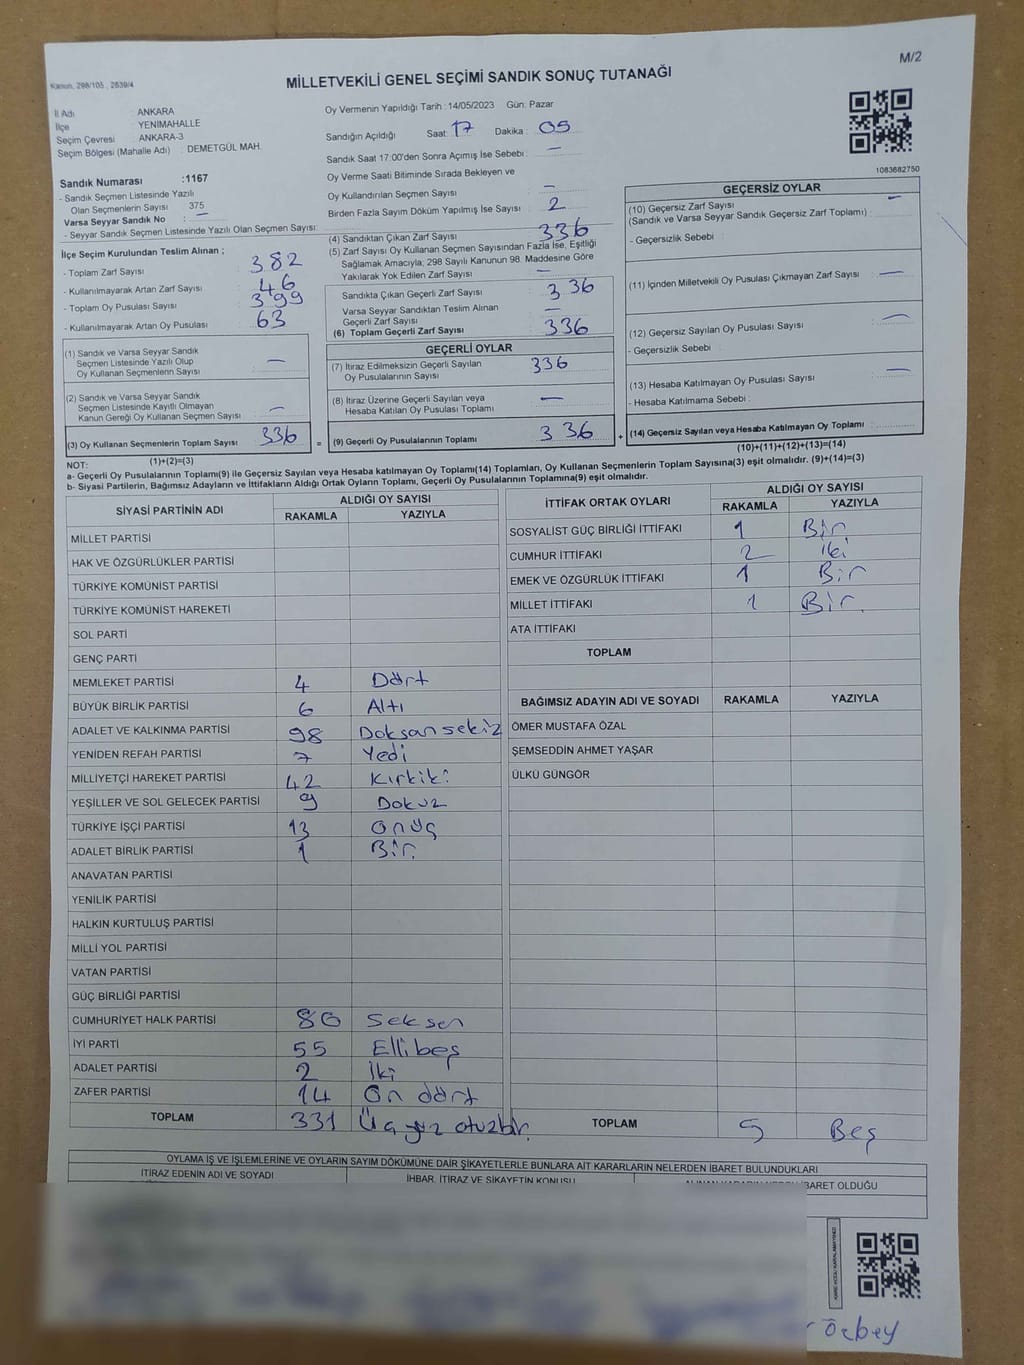 M/2
Kanun, 298/105 , 2839/4
MİLLETVEKİLİ GENEL SEÇİMİ SANDIK SONUÇ TUTANAĞI
İl Adı : ANKARA
İlçe : YENİMAHALLE
Seçim Çevresi : ANKARA-3
Seçim Bölgesi (Mahalle Adı) : DEMETGÜL MAH.
Oy Vermenin Yapıldığı Tarih : 14/05/2023 Gün: Pazar
Sandığın Açıldığı Saat: 17 Dakika : 05
Sandık Saat 17:00'den Sonra Açımış İse Sebebi : —
Oy Verme Saati Bitiminde Sırada Bekleyen ve
Oy Kullandırılan Seçmen Sayısı : —
Birden Fazla Sayım Döküm Yapılmış İse Sayısı : 2
1083682750
Sandık Numarası :1167
- Sandık Seçmen Listesinde Yazılı
Olan Seçmenlerin Sayısı : 375
Varsa Seyyar Sandık No : —
- Seyyar Sandık Seçmen Listesinde Yazılı Olan Seçmen Sayısı:
İlçe Seçim Kurulundan Teslim Alınan ;
- Toplam Zarf Sayısı : 382
- Kullanılmayarak Artan Zarf Sayısı : 46
- Toplam Oy Pusulası Sayısı : 399
- Kullanılmayarak Artan Oy Pusulası : 63
(1) Sandık ve Varsa Seyyar Sandık
Seçmen Listesinde Yazılı Olup
Oy Kullanan Seçmenlerın Sayısı : —
(2) Sandık ve Varsa Seyyar Sandık
Seçmen Listesinde Kayıtlı Olmayan
Kanun Gereği Oy Kullanan Seçmen Sayısı : —
(3) Oy Kullanan Seçmenlerin Toplam Sayısı : 336
(1)+(2)=(3)
(4) Sandıktan Çıkan Zarf Sayısı : 336
(5) Zarf Sayısı Oy Kullanan Seçmen Sayısından Fazla İse, Eşitliği
Sağlamak Amacıyla; 298 Sayılı Kanunun 98. Maddesine Göre
Yakılarak Yok Edilen Zarf Sayısı : —
Sandıkta Çıkan Geçerli Zarf Sayısı : 336
Varsa Seyyar Sandıktan Teslim Alınan
Geçerli Zarf Sayısı : —
(6) Toplam Geçerli Zarf Sayısı : 336
GEÇERLİ OYLAR
(7) İtiraz Edilmeksizin Geçerli Sayılan
Oy Pusulalarının Sayısı : 336
(8) İtiraz Üzerine Geçerli Sayılan veya
Hesaba Katılan Oy Pusulası Toplamı : —
= (9) Geçerli Oy Pusulalarının Toplamı : 336 +
GEÇERSİZ OYLAR
(10) Geçersiz Zarf Sayısı : —
(Sandık ve Varsa Seyyar Sandık Geçersiz Zarf Toplamı)
- Geçersizlik Sebebi :
(11) İçinden Milletvekili Oy Pusulası Çıkmayan Zarf Sayısı : —
(12) Geçersiz Sayılan Oy Pusulası Sayısı : —
- Geçersizlik Sebebi :
(13) Hesaba Katılmayan Oy Pusulası Sayısı : —
- Hesaba Katılmama Sebebi :
(14) Geçersiz Sayılan veya Hesaba Katılmayan Oy Toplamı :
(10)+(11)+(12)+(13)=(14)
NOT:
a- Geçerli Oy Pusulalarının Toplamı(9) ile Geçersiz Sayılan veya Hesaba katılmayan Oy Toplamı(14) Toplamları, Oy Kullanan Seçmenlerin Toplam Sayısına(3) eşit olmalıdır. (9)+(14)=(3)
b- Siyasi Partilerin, Bağımsız Adayların ve İttifakların Aldığı Ortak Oyların Toplamı, Geçerli Oy Pusulalarının Toplamına(9) eşit olmalıdır.
SİYASİ PARTİNİN ADI ALDIĞI OY SAYISI
RAKAMLA YAZIYLA
MİLLET PARTİSİ
HAK VE ÖZGÜRLÜKLER PARTİSİ
TÜRKİYE KOMÜNİST PARTİSİ
TÜRKİYE KOMÜNİST HAREKETİ
SOL PARTİ
GENÇ PARTİ
MEMLEKET PARTİSİ 4 Dört
BÜYÜK BİRLİK PARTİSİ 6 Altı
ADALET VE KALKINMA PARTİSİ 98 Doksan sekiz
YENİDEN REFAH PARTİSİ 7 Yedi
MİLLİYETÇİ HAREKET PARTİSİ 42 Kırkiki
YEŞİLLER VE SOL GELECEK PARTİSİ 9 Dokuz
TÜRKİYE İŞÇİ PARTİSİ 13 Onüç
ADALET BİRLİK PARTİSİ 1 Bir.
ANAVATAN PARTİSİ
YENİLİK PARTİSİ
HALKIN KURTULUŞ PARTİSİ
MİLLİ YOL PARTİSİ
VATAN PARTİSİ
GÜÇ BİRLİĞİ PARTİSİ
CUMHURİYET HALK PARTİSİ 80 Seksen
İYİ PARTİ 55 Ellibeş
ADALET PARTİSİ 2 İki
ZAFER PARTİSİ 14 On dört
TOPLAM 331 Üç yüz otuzbir.
İTTİFAK ORTAK OYLARI ALDIĞI OY SAYISI
RAKAMLA YAZIYLA
SOSYALİST GÜÇ BİRLİĞİ İTTİFAKI 1 Bir
CUMHUR İTTİFAKI 2 iki
EMEK VE ÖZGÜRLÜK İTTİFAKI 1 Bir
MİLLET İTTİFAKI 1 Bir.
ATA İTTİFAKI
TOPLAM
BAĞIMSIZ ADAYIN ADI VE SOYADI RAKAMLA YAZIYLA
ÖMER MUSTAFA ÖZAL
ŞEMSEDDİN AHMET YAŞAR
ÜLKÜ GÜNGÖR
TOPLAM 5 Beş
OYLAMA İŞ VE İŞLEMLERİNE VE OYLARIN SAYIM DÖKÜMÜNE DAİR ŞİKAYETLERLE BUNLARA AİT KARARLARIN NELERDEN İBARET BULUNDUKLARI
İTİRAZ EDENİN ADI VE SOYADI İHBAR, İTİRAZ VE ŞİKAYETİN KONUSU İBARET OLDUĞU
Özbey